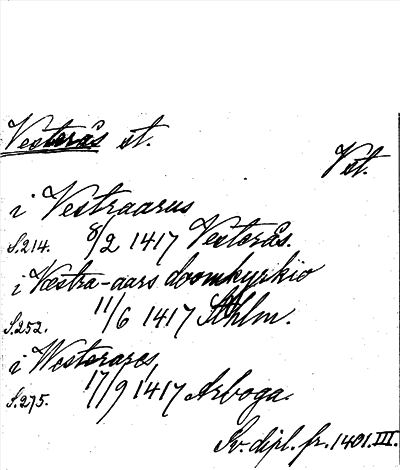 Vesterås st.
Vst.
i Vestraarus
S.214. 8/2 1417 Vesterås.
i Væstra-aars doomkyrkio
S.252. 11/6 1417 Sthlm.
i Westeraros
S.275. 17/9 1417 Arboga.
Sv. dipl. fr. 1401. III.